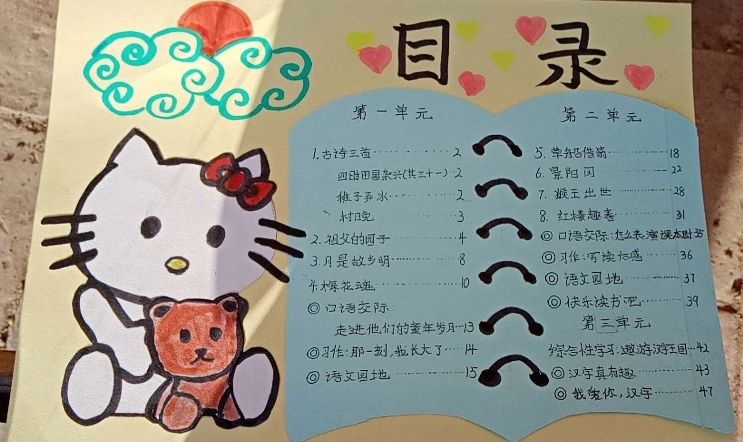 目录
第一单元
1.古诗三首……2
四时田园杂兴(其三十一)…2
稚子弄冰……2
村晚……3
2.祖父的园子……4
3.月是故乡明……8
4.梅花魂……10
◎口语交际:
走进他们的童年岁月…13
◎习作:那一刻,我长大了……14
◎语文园地……15
第二单元
5.草船借箭……18
6.景阳冈……22
7.猴王出世……28
8.红楼趣春……31
◎口语交际:怎么表演课本剧35
◎习作:写读后感……36
◎语文园地……37
◎快乐读书吧……39
第三单元
综合性学习:遨游汉字王国…42
◎汉字真有趣……43
◎我爱你,汉字……47